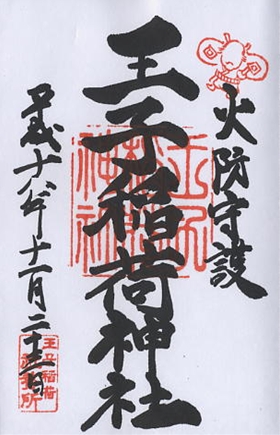 火防守護
王子稲荷神社
平成十八年十一月二十三日
王子稲荷神社
王子稲荷